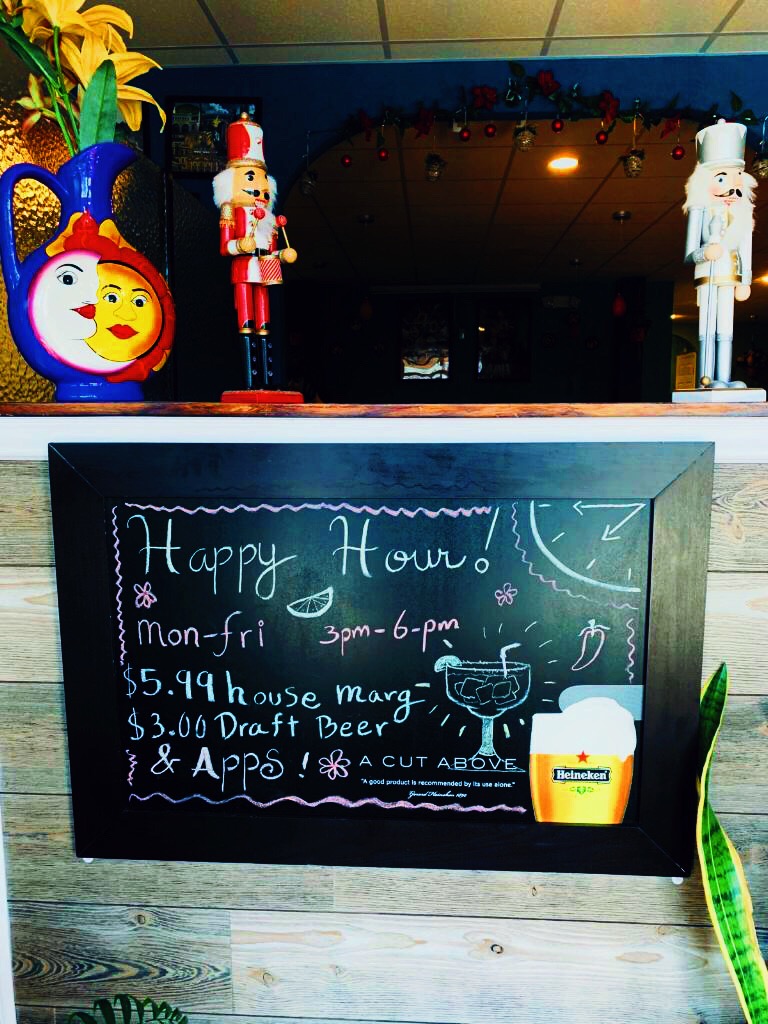 Happy Hour!
mon-fri 3pm-6-pm
$5.99 house marg
$3.00 Draft Beer
& Apps!
A CUT ABOVE
"A good product is recommended by its use alone."
Heineken